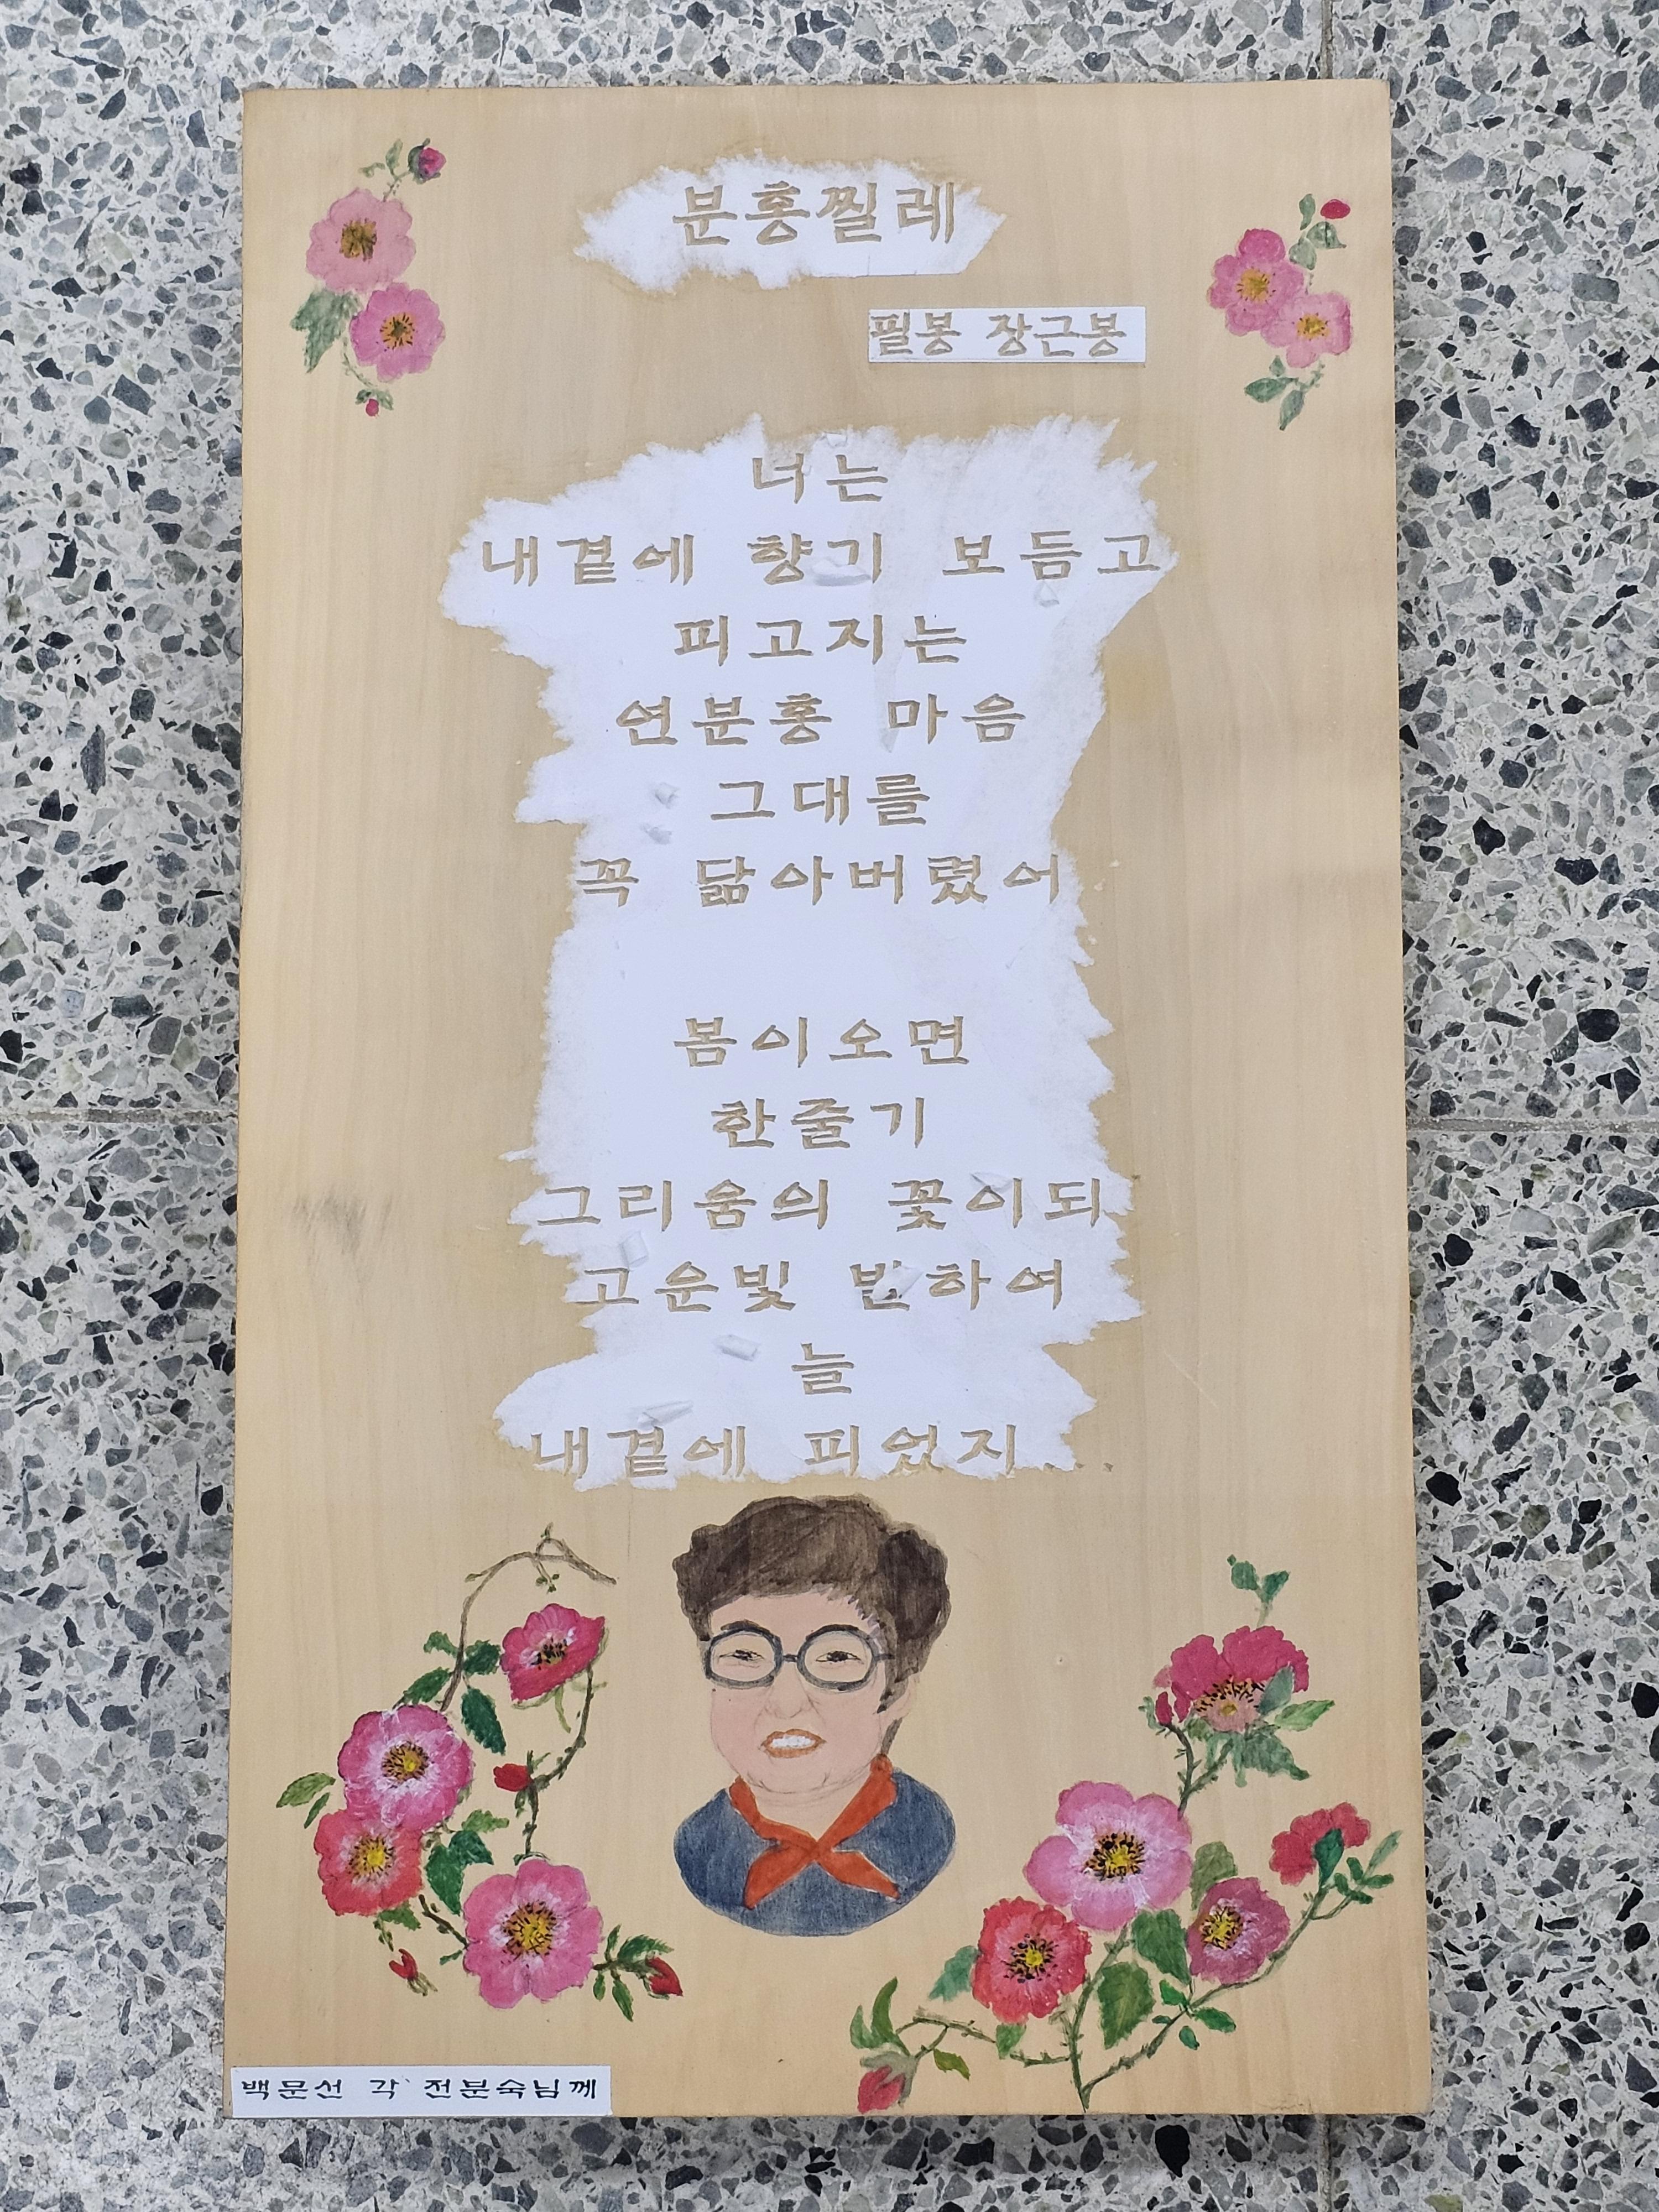 분홍찔레
필봉 장근봉
너는
내곁에 향기 보듬고
피고지는
연분홍 마음
그대를
꼭 닮아버렸어
봄이오면
한줄기
그리움의 꽃이되
고운빛 발하여
늘
내곁에 피었지...
백문선 각 전분숙님께